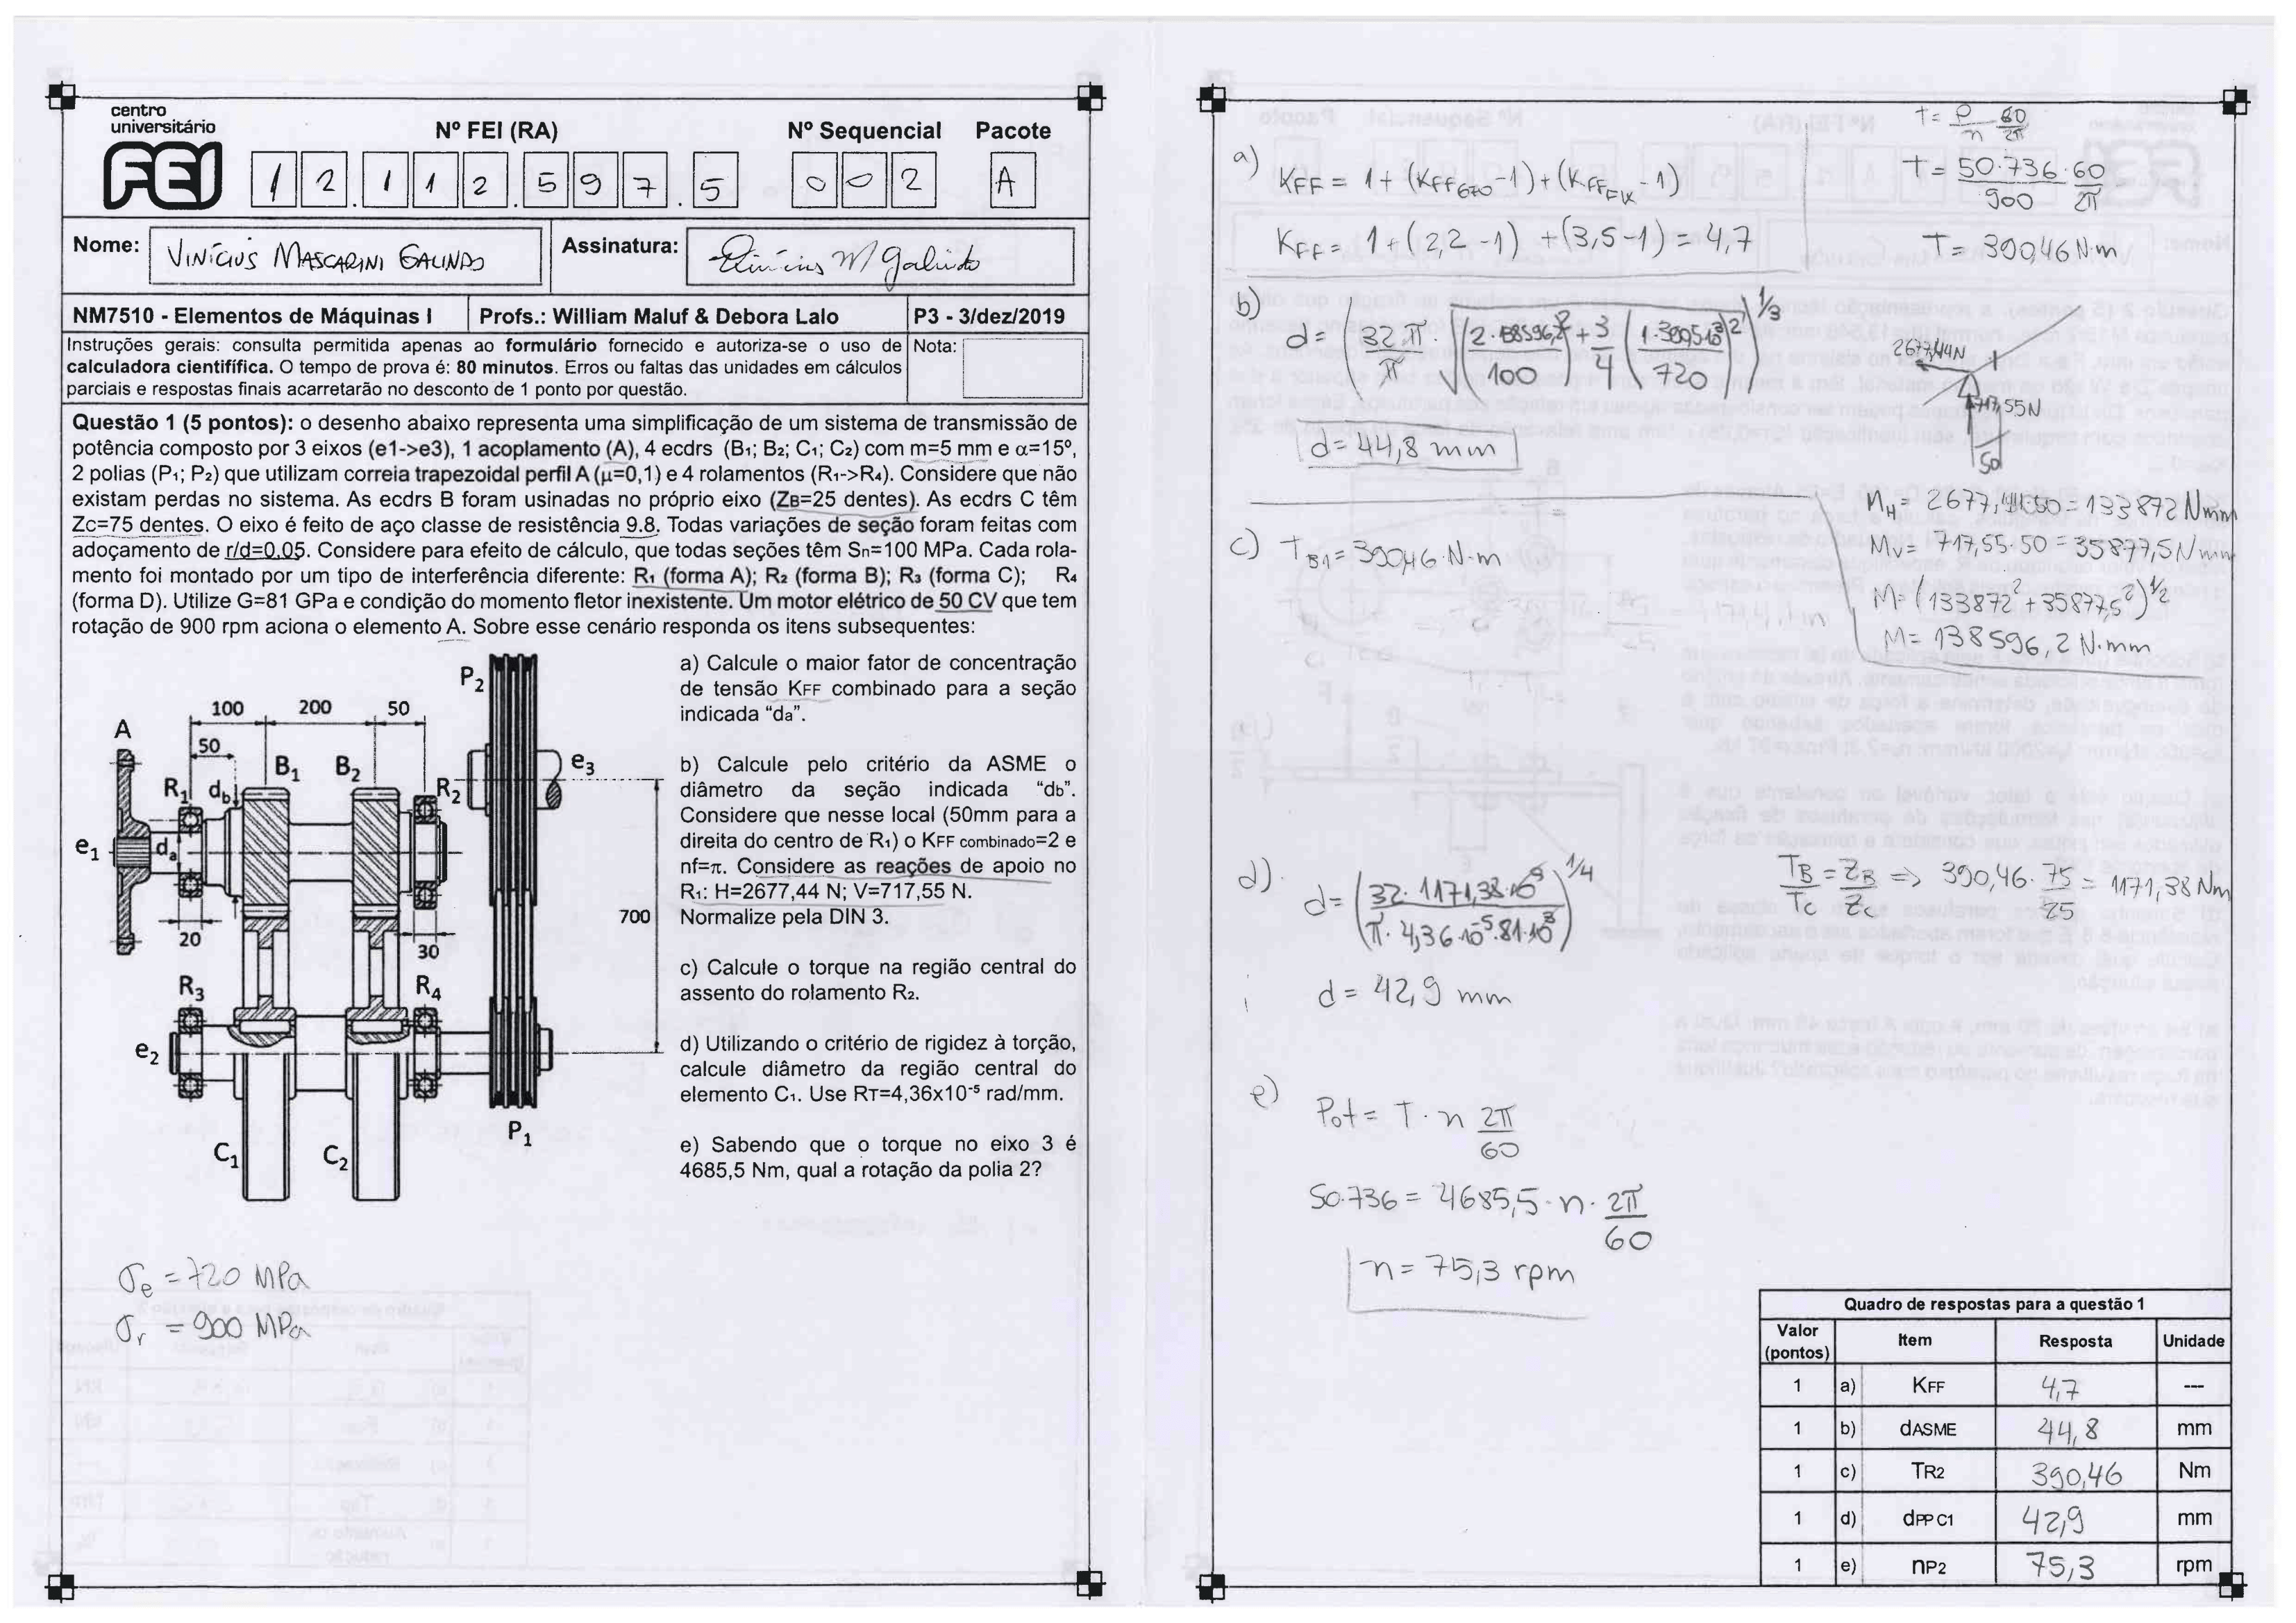 centro
universitário
FEI
Nº FEI (RA)
Nº Sequencial
Pacote
1 2 . 1 1 2 . 5 9 7 . 5
0 0 2
A
Nome: VINÍCIUS MASCARINI GALINDO
Assinatura: Vinicius M Galindo
NM7510 - Elementos de Máquinas I
Profs.: William Maluf & Debora Lalo
P3 - 3/dez/2019
Instruções gerais: consulta permitida apenas ao formulário fornecido e autoriza-se o uso de
calculadora cientifífica. O tempo de prova é: 80 minutos. Erros ou faltas das unidades em cálculos
parciais e respostas finais acarretarão no desconto de 1 ponto por questão.
Nota:
Questão 1 (5 pontos): o desenho abaixo representa uma simplificação de um sistema de transmissão de
potência composto por 3 eixos (e1->e3), 1 acoplamento (A), 4 ecdrs (B1; B2; C1; C2) com m=5 mm e α=15º,
2 polias (P1; P2) que utilizam correia trapezoidal perfil A (μ=0,1) e 4 rolamentos (R1->R4). Considere que não
existam perdas no sistema. As ecdrs B foram usinadas no próprio eixo (ZB=25 dentes). As ecdrs C têm
Zc=75 dentes. O eixo é feito de aço classe de resistência 9.8. Todas variações de seção foram feitas com
adoçamento de r/d=0.05. Considere para efeito de cálculo, que todas seções têm Sn=100 MPa. Cada rola-
mento foi montado por um tipo de interferência diferente: R1 (forma A); R2 (forma B); R3 (forma C); R4
(forma D). Utilize G=81 GPa e condição do momento fletor inexistente. Um motor elétrico de 50 CV que tem
rotação de 900 rpm aciona o elemento A. Sobre esse cenário responda os itens subsequentes:
P2
100 200 50
A
50
B1 B2
R1 db R2
e3
e1 da
700
20 30
R3 R4
e2
P1
C1 C2
a) Calcule o maior fator de concentração
de tensão KFF combinado para a seção
indicada “da”.
b) Calcule pelo critério da ASME o
diâmetro da seção indicada “db”.
Considere que nesse local (50mm para a
direita do centro de R1) o KFF combinado=2 e
nf=π. Considere as reações de apoio no
R1: H=2677,44 N; V=717,55 N.
Normalize pela DIN 3.
c) Calcule o torque na região central do
assento do rolamento R2.
d) Utilizando o critério de rigidez à torção,
calcule diâmetro da região central do
elemento C1. Use RT=4,36x10-5 rad/mm.
e) Sabendo que o torque no eixo 3 é
4685,5 Nm, qual a rotação da polia 2?
σe = 720 MPa
σr = 900 MPa
a) KFF = 1 + (KFF670 -1) + (KFFFIX -1)
KFF = 1 + (2,2 -1) + (3,5 -1) = 4,7
T = P/n 60/2π
T = 50·736/900 · 60/2π
T = 390,46 N·m
b) d = (32·π/π · √((2·138596,2/100)² + 3/4 (1·390,5·10³/720)²))^1/3
d = 44,8 mm
2677,44N
717,55N
50
MH = 2677,44·50 = 133872 Nmm
MV = 717,55·50 = 35877,5 Nmm
M = (133872² + 35877,5²)^1/2
M = 138596,2 N·mm
c) TB1 = 390,46·N·m
d) d = (32·1171,38·10³/π·4,36·10-5·81·10³)^1/4
d = 42,9 mm
TB/TC = ZB/ZC => 390,46·75/25 = 1171,38 Nm
e) Pot = T·n 2π/60
50·736 = 4685,5·n·2π/60
n = 75,3 rpm
Quadro de respostas para a questão 1
Valor (pontos) Item Resposta Unidade
1 a) KFF 4,7 ---
1 b) dASME 44,8 mm
1 c) TR2 390,46 Nm
1 d) dPP C1 42,9 mm
1 e) nP2 75,3 rpm